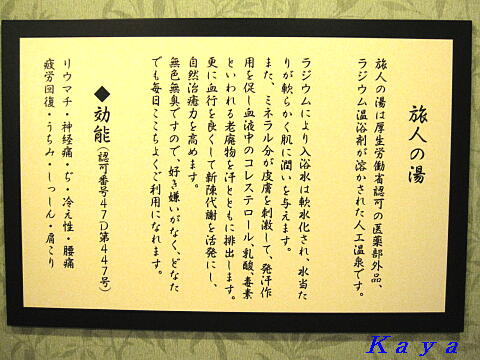 旅人の湯
旅人の湯は厚生労働省認可の医薬部外品、
ラジウム温浴剤が溶かされた人工温泉です。
ラジウムにより入浴水は軟水化され、水当た
りが軟らかく肌に潤いを与えます。
また、ミネラル分が皮膚を刺激して、発汗作
用を促し血液中のコレステロール、乳酸、毒素
といわれる老廃物を汗とともに排出します。
更に血行を良くして新陳代謝を活発にし、
自然治癒力を高めます。
無色無臭ですので、好き嫌いがなく、どなた
でも毎日ここちよくご利用になれます。
◆効能(認可番号47D第447号)
リウマチ・神経痛・ぢ・冷え性・腰痛
疲労回復・うちみ・しっしん・肩こり
Kaya